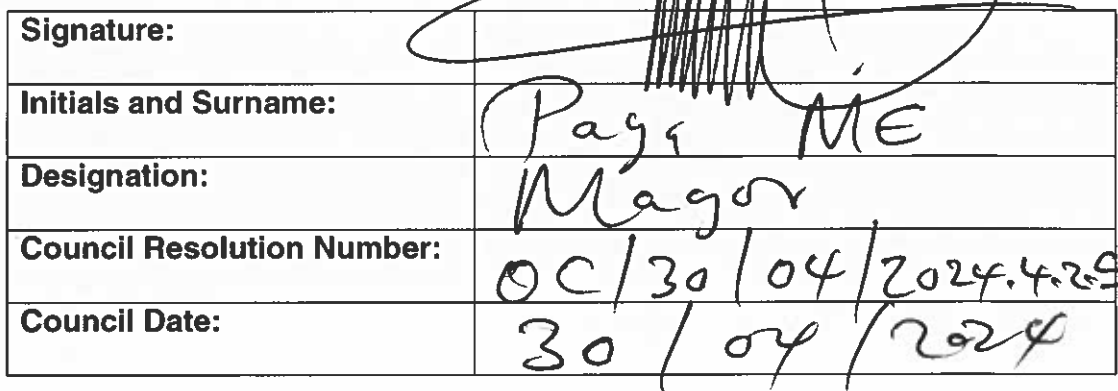 Signature:
Initials and Surname: Paya ME
Designation: Mayor
Council Resolution Number: OC/30/04/2024.4.2.9
Council Date: 30/04/2024